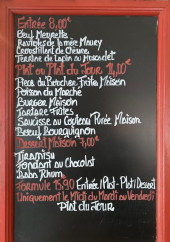 Entrée 8,00€
Oeuf Meurette
Ravioles de la mère Maury
Croustillant de Chèvre
Terrine de Lapin au Muscadet
Plat ou Plat du Jour 14,00€
Pièce du Boucher, Frites Maison
Poisson du Marché
Burger Maison
Tartare Frites
Saucisse au Couteau Purée Maison
Boeuf Bourguignon
Dessert Maison 7,00€
Tiramisu
Fondant au Chocolat
Baba Rhum
Formule 15,90 Entrée/Plat - Plat/Dessert
Uniquement le Midi du Mardi au Vendredi
Plat du Jour